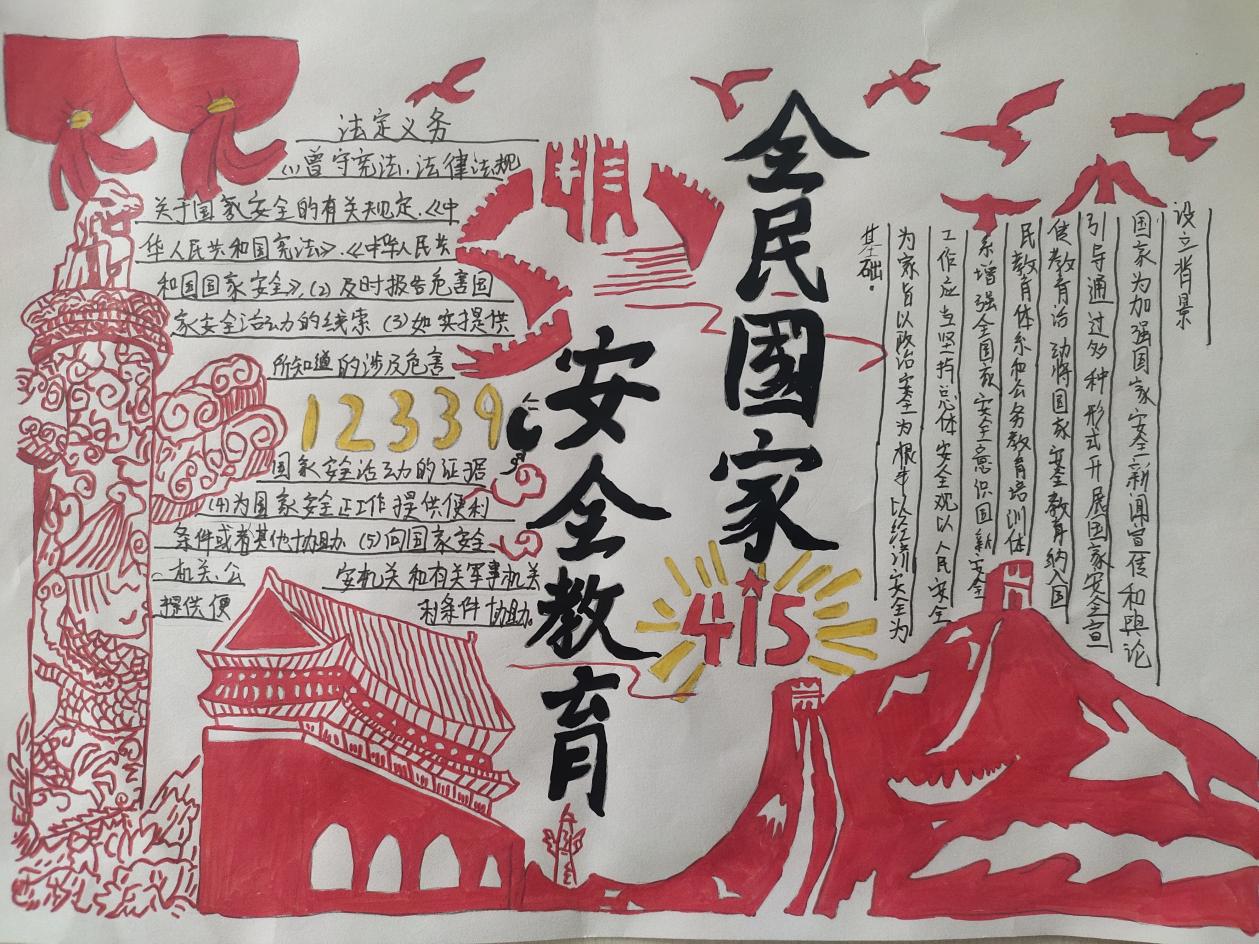 全民國家
安全教育
415
法定义务
(1)曾守宪法、法律法规
关于国家安全的有关规定.《中
华人民共和国宪法》.《中华人民共
和国国家安全》,(2)及时报告危害国
家安全活动的线索 (3)如实提供
所知道的涉及危害
12339
国家安全活动的证据
(4)为国家安全正工作提供便利
条件或者其他协助 (5)向国家安全
机关、公 安机关和有关军事机关
提供便 利条件协助。
设立背景
国家为加强国家安全新闻宣传和舆论
引导通过多种形式开展国家安全宣
使教育活动将国家安全教育纳入国
民教育体系和公务教育培训体
系增强全国家安全意识国新安全
工作应当坚持总体安全观以人民安全
为家旨以政治安全为根本以经济安全为
基础.